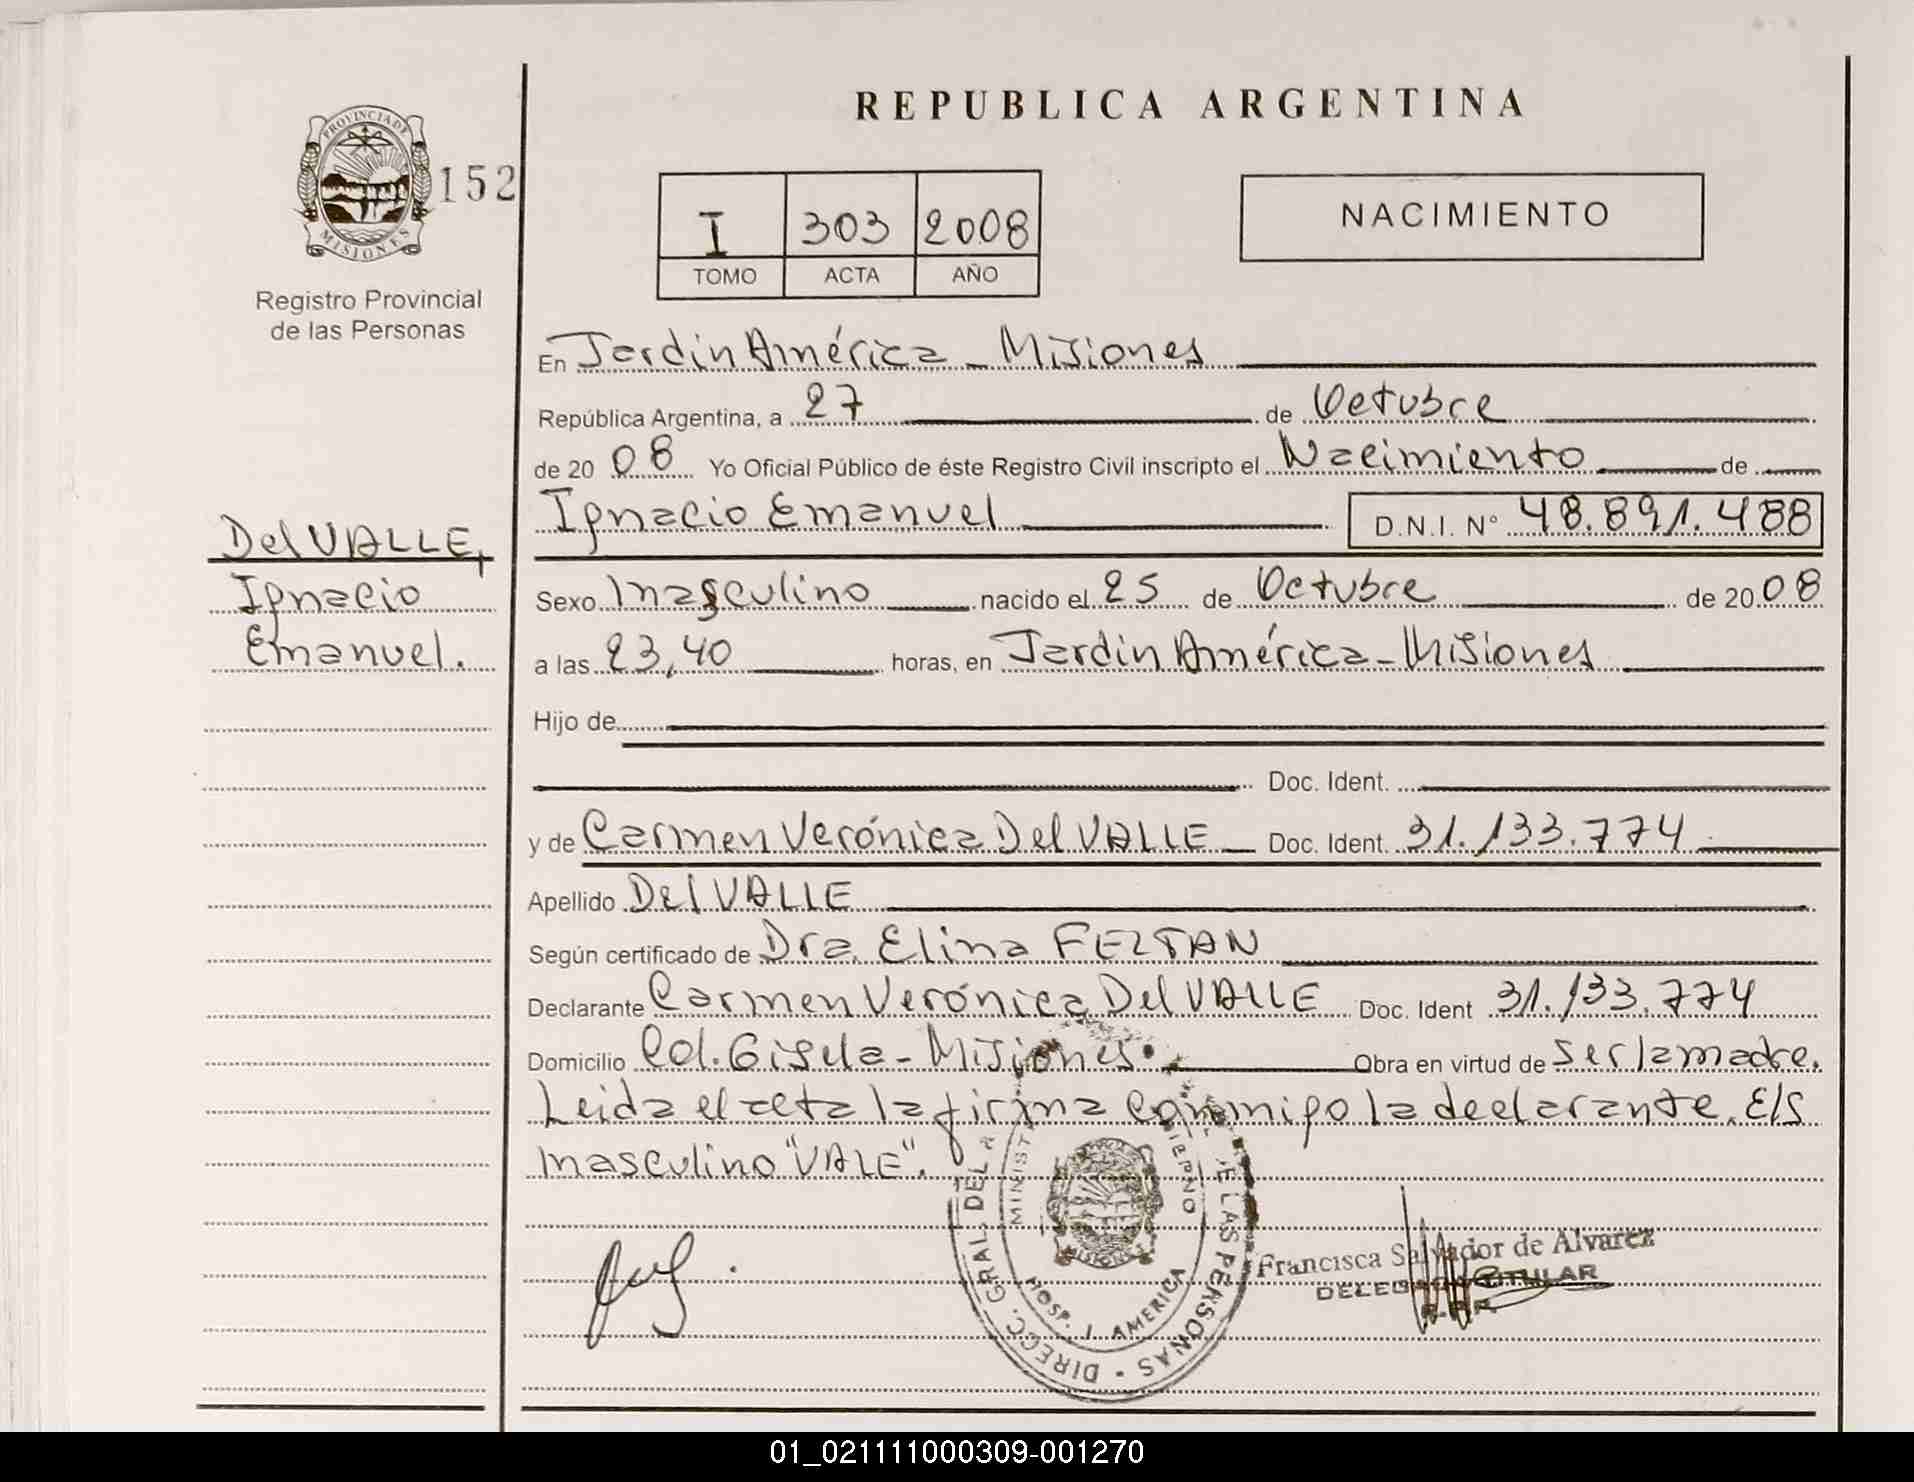 REPUBLICA ARGENTINA
PROVINCIA DE
MISIONES
152
Registro Provincial
de las Personas
I 303 2008
TOMO ACTA AÑO
NACIMIENTO
En Jardín América - Misiones
República Argentina, a 27 de Octubre
de 20 08 Yo Oficial Público de éste Registro Civil inscripto el Nacimiento de
Ignacio Emanuel D.N.I. N° 48.891.488
Del VALLE,
Ignacio
Emanuel.
Sexo masculino nacido el 25 de Octubre de 20 08
a las 23,40 horas, en Jardín América - Misiones
Hijo de
Doc. Ident.
y de Carmen Verónica Del VALLE Doc. Ident. 31.133.774
Apellido Del VALLE
Según certificado de Dra. Elina
Declarante Carmen Verónica Del VALLE Doc. Ident 31.133.774
Domicilio Col. Gisela - Misiones. Obra en virtud de ser la madre.
Leida el acta la firma conmigo la declarante. E/S
masculino "VALE".
DIRECC. GRAL. DEL DE LAS PERSONAS
HOSP. J. AMERICA
MISIONES
Francisca Salvador de Alvarez
TITULAR
01_021111000309-001270